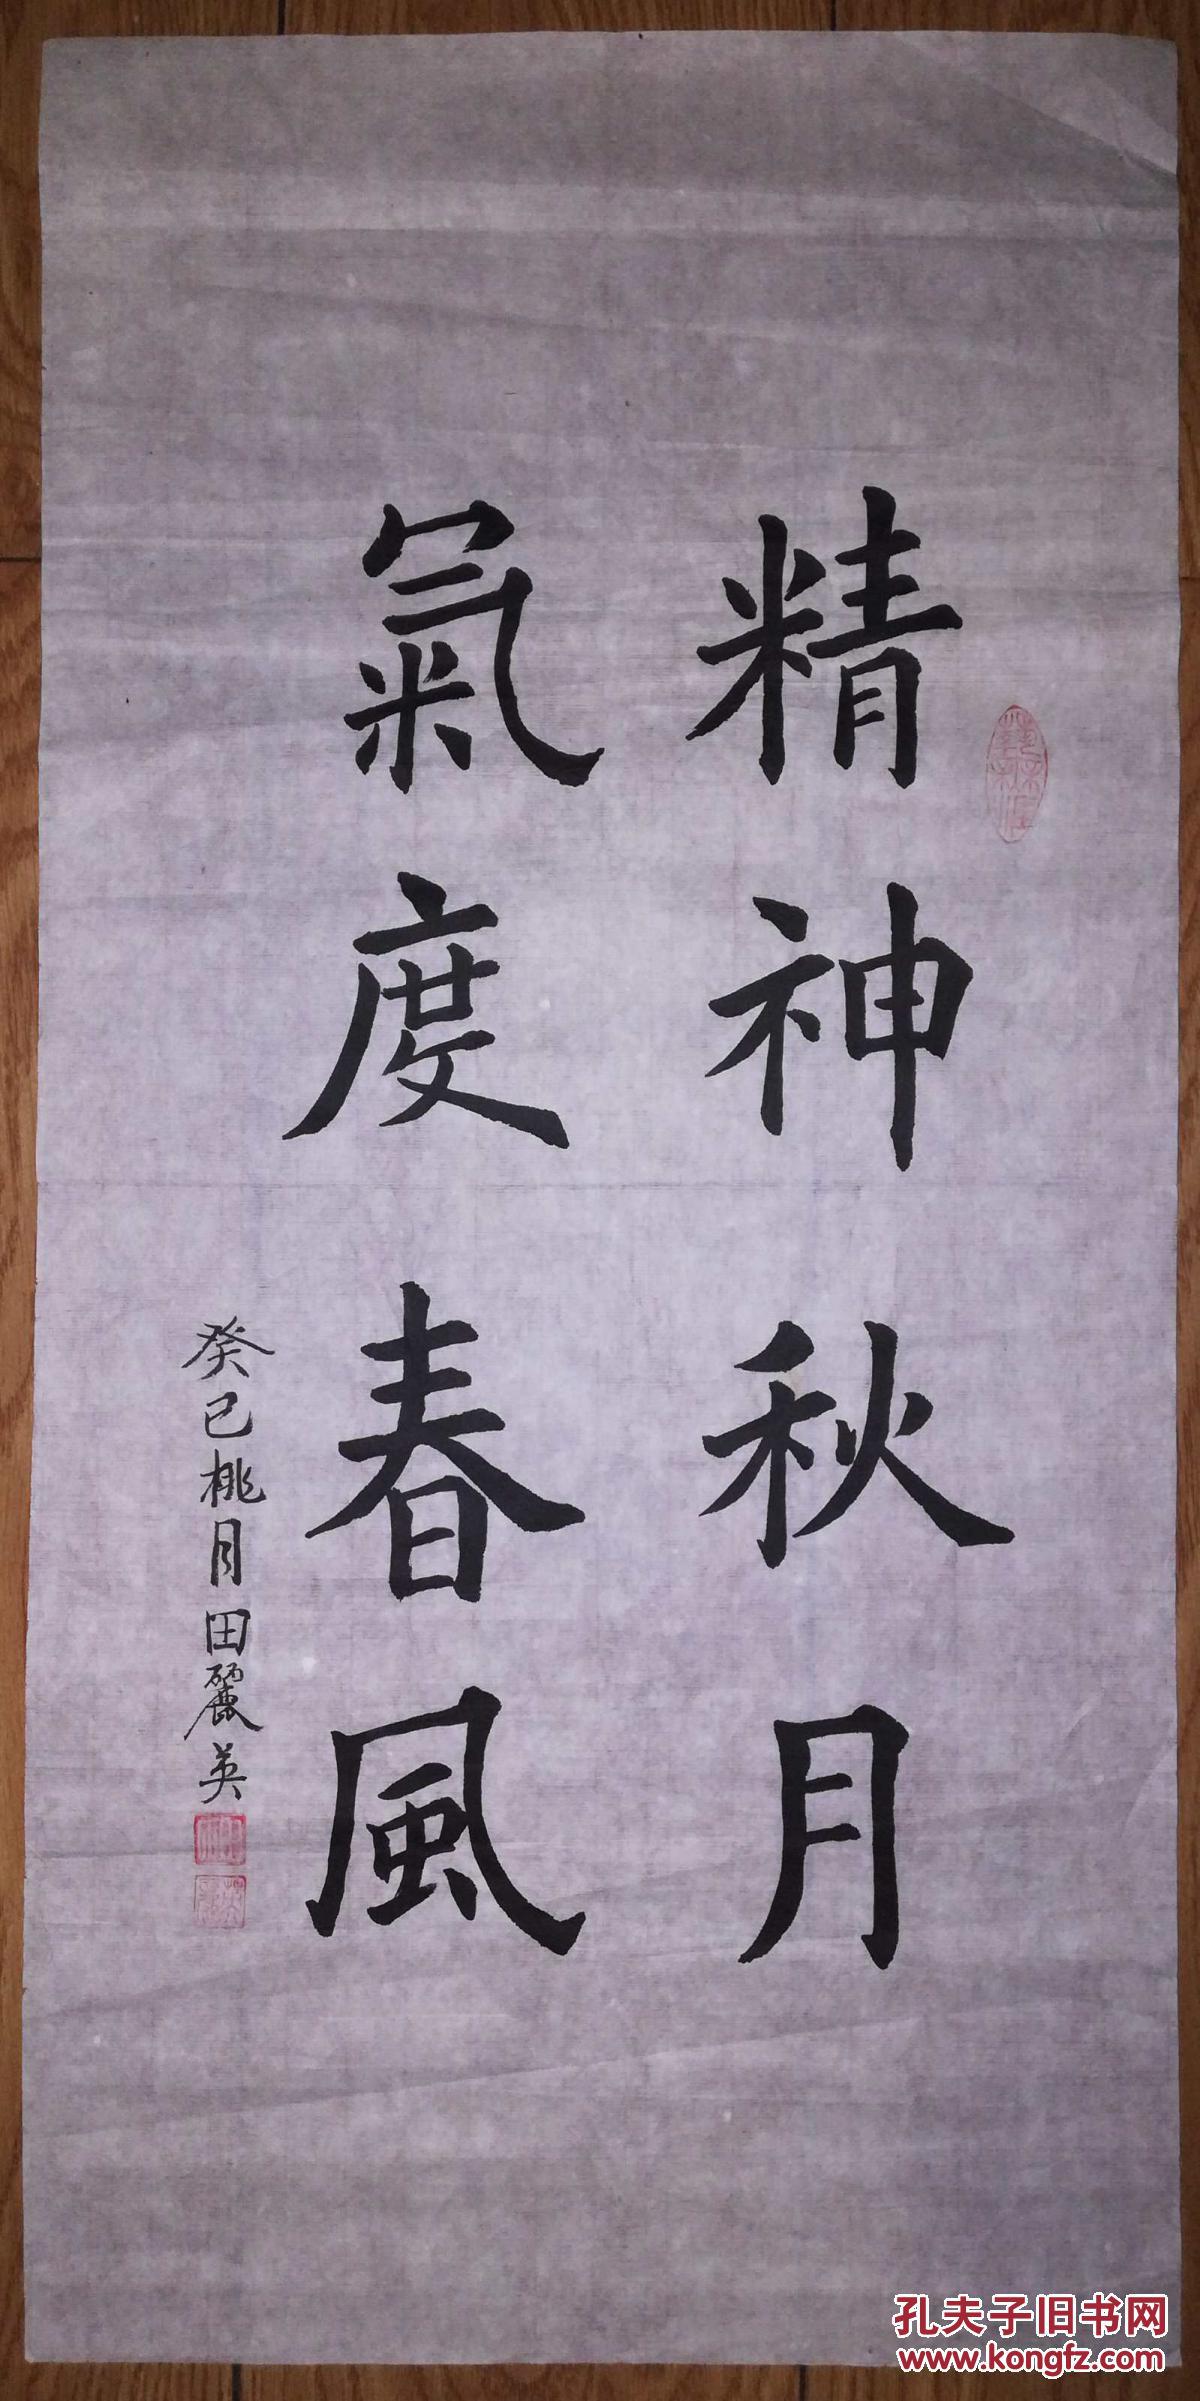 精神秋月
氣度春風
癸巳桃月田麗英
孔夫子旧书网
www.kongfz.com